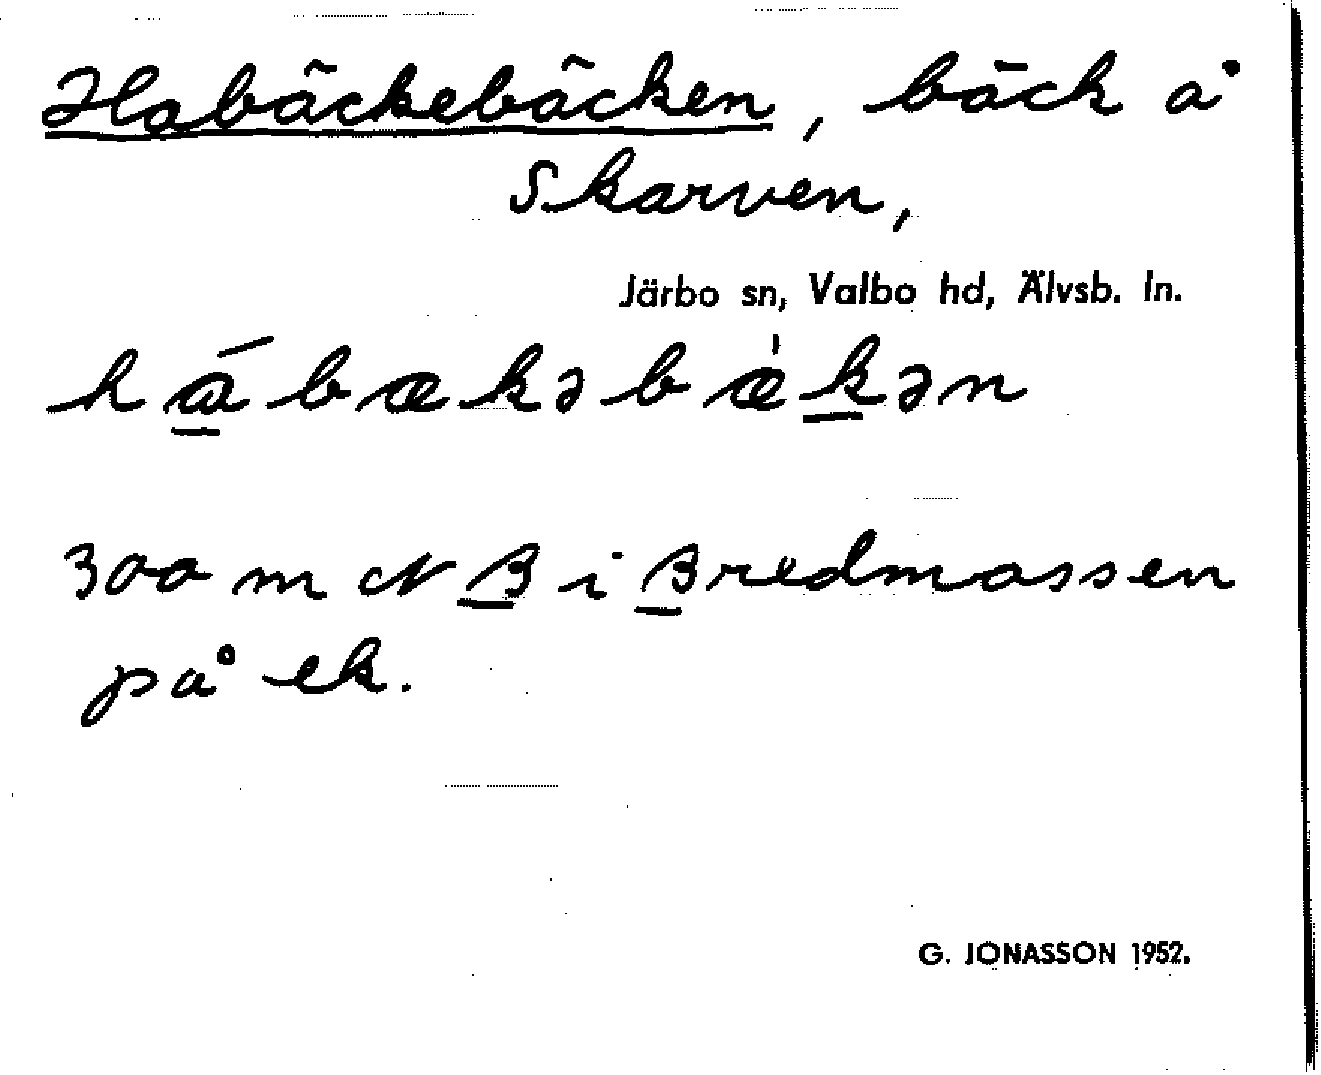 Habäckebäcken, bäck å
Skarven,
Järbo sn, Valbo hd, Älvsb. ln.
hábækəbæ̀kən
300 m N B i Bredmossen
på ek.
G. JONASSON 1952.